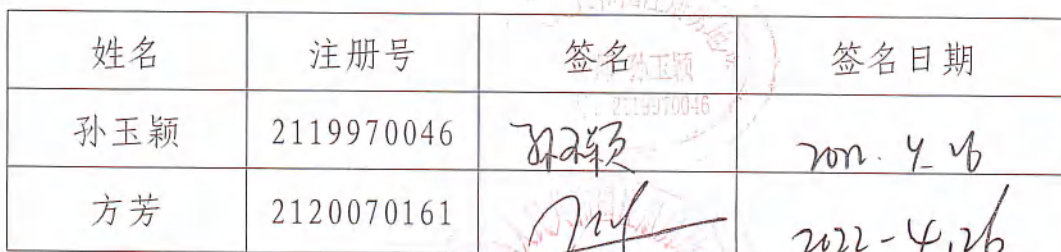 姓名 注册号 签名 签名日期
孙玉颖 2119970046 孙玉颖 2022.4.26
方芳 2120070161 2022-4.26
孙玉颖
2119970046